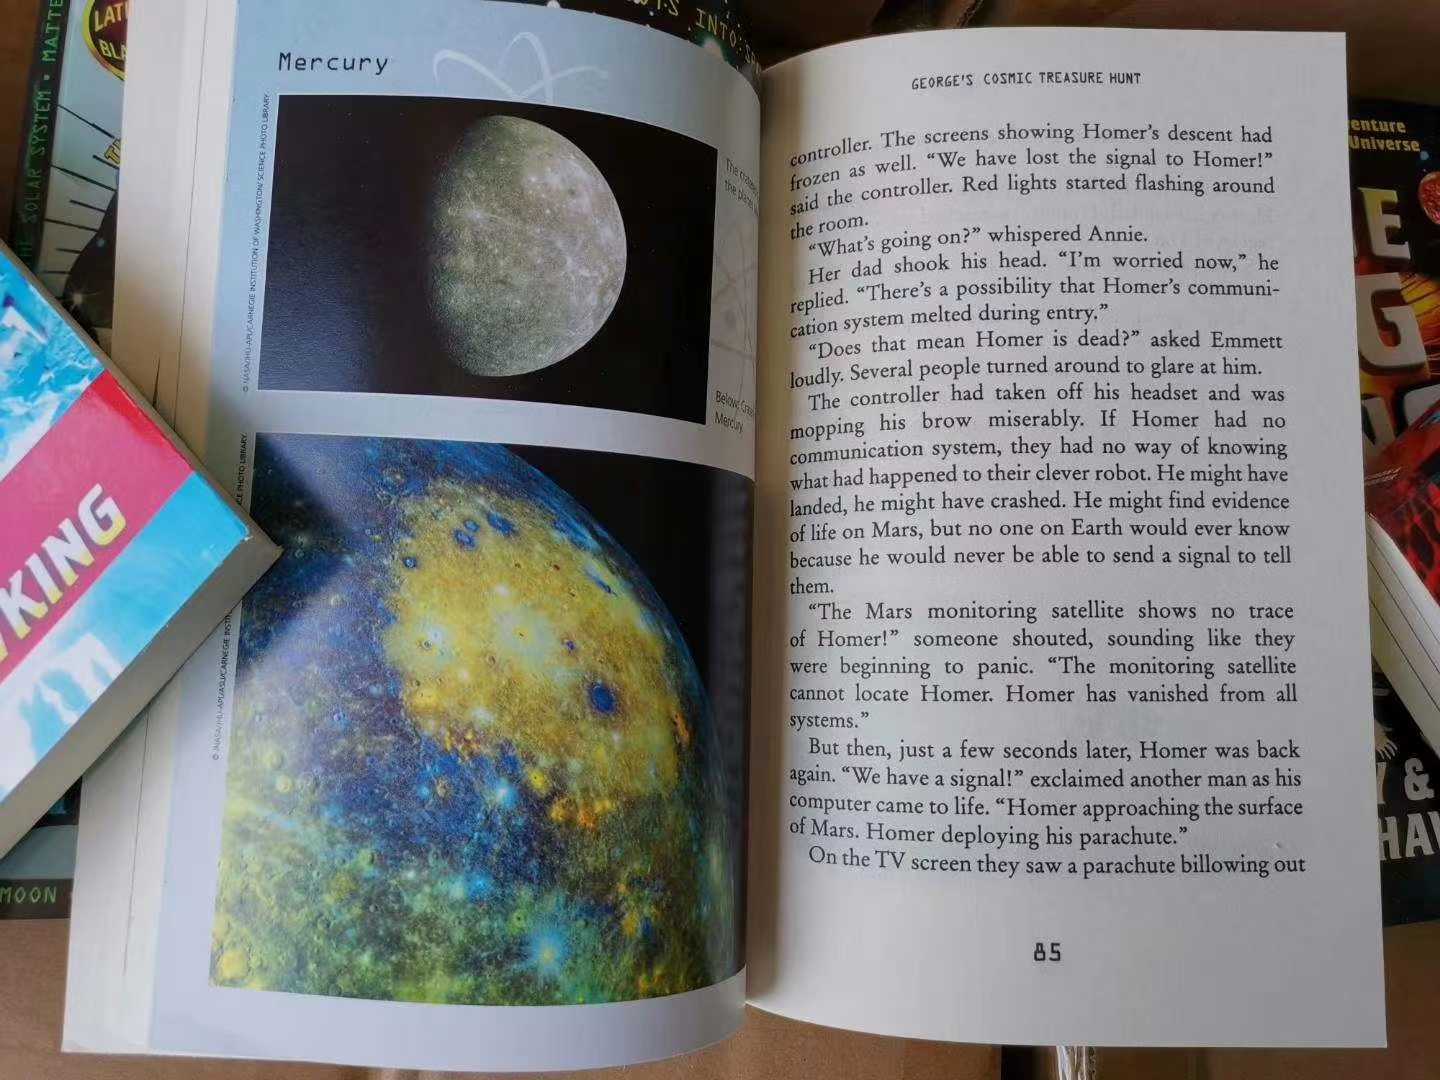 Mercury
© NASA/JHU-APL/CARNEGIE INSTITUTION OF WASHINGTON/ SCIENCE PHOTO LIBRARY
Mercury
GEORGE'S COSMIC TREASURE HUNT
controller. The screens showing Homer's descent had
frozen as well. “We have lost the signal to Homer!”
said the controller. Red lights started flashing around
the room.
“What's going on?” whispered Annie.
Her dad shook his head. “I'm worried now,” he
replied. “There's a possibility that Homer's communi-
cation system melted during entry.”
“Does that mean Homer is dead?” asked Emmett
loudly. Several people turned around to glare at him.
The controller had taken off his headset and was
mopping his brow miserably. If Homer had no
communication system, they had no way of knowing
what had happened to their clever robot. He might have
landed, he might have crashed. He might find evidence
of life on Mars, but no one on Earth would ever know
because he would never be able to send a signal to tell
them.
“The Mars monitoring satellite shows no trace
of Homer!” someone shouted, sounding like they
were beginning to panic. “The monitoring satellite
cannot locate Homer. Homer has vanished from all
systems.”
But then, just a few seconds later, Homer was back
again. “We have a signal!” exclaimed another man as his
computer came to life. “Homer approaching the surface
of Mars. Homer deploying his parachute.”
On the TV screen they saw a parachute billowing out
85
SOLAR SYSTEM • MATTE
MOON
INTO
Universe
&